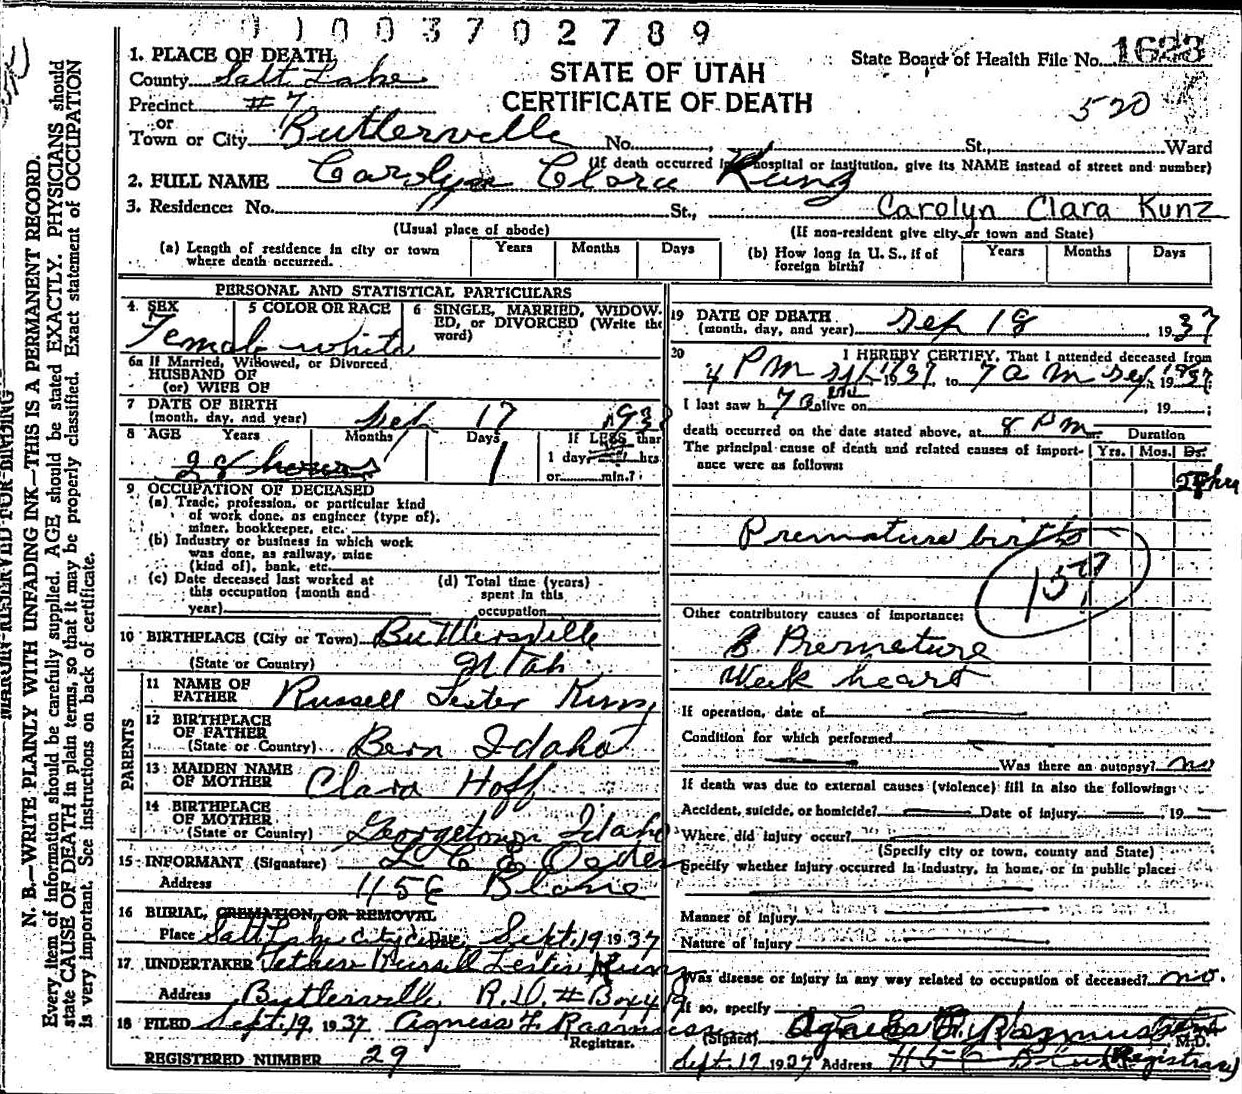 0 1 0 0 3 7 0 2 7 8 9
1. PLACE OF DEATH
County Salt Lake
Precinct #7
or
Town or City Buttlerville No. St., Ward
(If death occurred in a hospital or institution, give its NAME instead of street and number)
STATE OF UTAH
CERTIFICATE OF DEATH
State Board of Health File No. 1623
520
2. FULL NAME Carolyn Clara Kunz
3. Residence: No. St., Carolyn Clara Kunz
(Usual place of abode) (If non-resident give city or town and State)
(a) Length of residence in city or town where death occurred. Years Months Days
(b) How long in U. S., if of foreign birth? Years Months Days
PERSONAL AND STATISTICAL PARTICULARS
4. SEX 5 COLOR OR RACE 6 SINGLE, MARRIED, WIDOW-
ED, or DIVORCED (Write the
word)
Female white
6a If Married, Widowed, or Divorced
HUSBAND OF
(or) WIFE OF
7 DATE OF BIRTH
(month, day, and year) Sep 17 193
8 AGE Years Months Days If LESS than
28 hours 1 1 day, hrs.
or min.?
9 OCCUPATION OF DECEASED
(a) Trade, profession, or particular kind
of work done, as engineer (type of),
miner, bookkeeper, etc.
(b) Industry or business in which work
was done, as railway, mine
(kind of), bank, etc.
(c) Date deceased last worked at
this occupation (month and
year)
(d) Total time (years)
spent in this
occupation
10 BIRTHPLACE (City or Town) Buttlersville
(State or Country) Utah
PARENTS
11 NAME OF
FATHER Russell Lester Kunz
12 BIRTHPLACE
OF FATHER
(State or Country) Bern Idaho
13 MAIDEN NAME
OF MOTHER Clara Hoff
14 BIRTHPLACE
OF MOTHER
(State or Country) Georgetown Idaho
15 INFORMANT (Signature)
Address 1156
16 BURIAL, CREMATION, OR REMOVAL
Place Salt Lake City Date Sept. 19 1937
17 UNDERTAKER Russell Lester Kunz
Address Buttlerville R.D. # Box
18 FILED Sept. 19, 1937 Agness F. Rasmussen
Registrar.
REGISTERED NUMBER 29
19 DATE OF DEATH
(month, day, and year) Sep 18 1937
20 I HEREBY CERTIFY, That I attended deceased from
4 PM 1937 to 7 a m Sep. 1937;
I last saw h alive on , 19 ;
death occurred on the date stated above, at 8 PM.
The principal cause of death and related causes of import-
ance were as follows:
Duration
Yrs. Mos. Ds.
28 hrs
Premature birth
157
Other contributory causes of importance:
Premature
Week heart
If operation, date of
Condition for which performed
Was there an autopsy? no
If death was due to external causes (violence) fill in also the following:
Accident, suicide, or homicide? Date of injury , 19
Where did injury occur?
(Specify city or town, county and State)
Specify whether injury occurred in industry, in home, or in public place:
Manner of Injury
Nature of Injury
Was disease or injury in any way related to occupation of deceased? no.
If so, specify
(Signed) Agness F. Rasmussen M.D.
Sept. 19 1937 Address (Registrar)
MARGIN RESERVED FOR BINDING
N. B.—WRITE PLAINLY WITH UNFADING INK—THIS IS A PERMANENT RECORD.
Every item of information should be carefully supplied. AGE should be stated EXACTLY. PHYSICIANS should
state CAUSE OF DEATH in plain terms, so that it may be properly classified. Exact statement of OCCUPATION
is very important. See instructions on back of certificate.